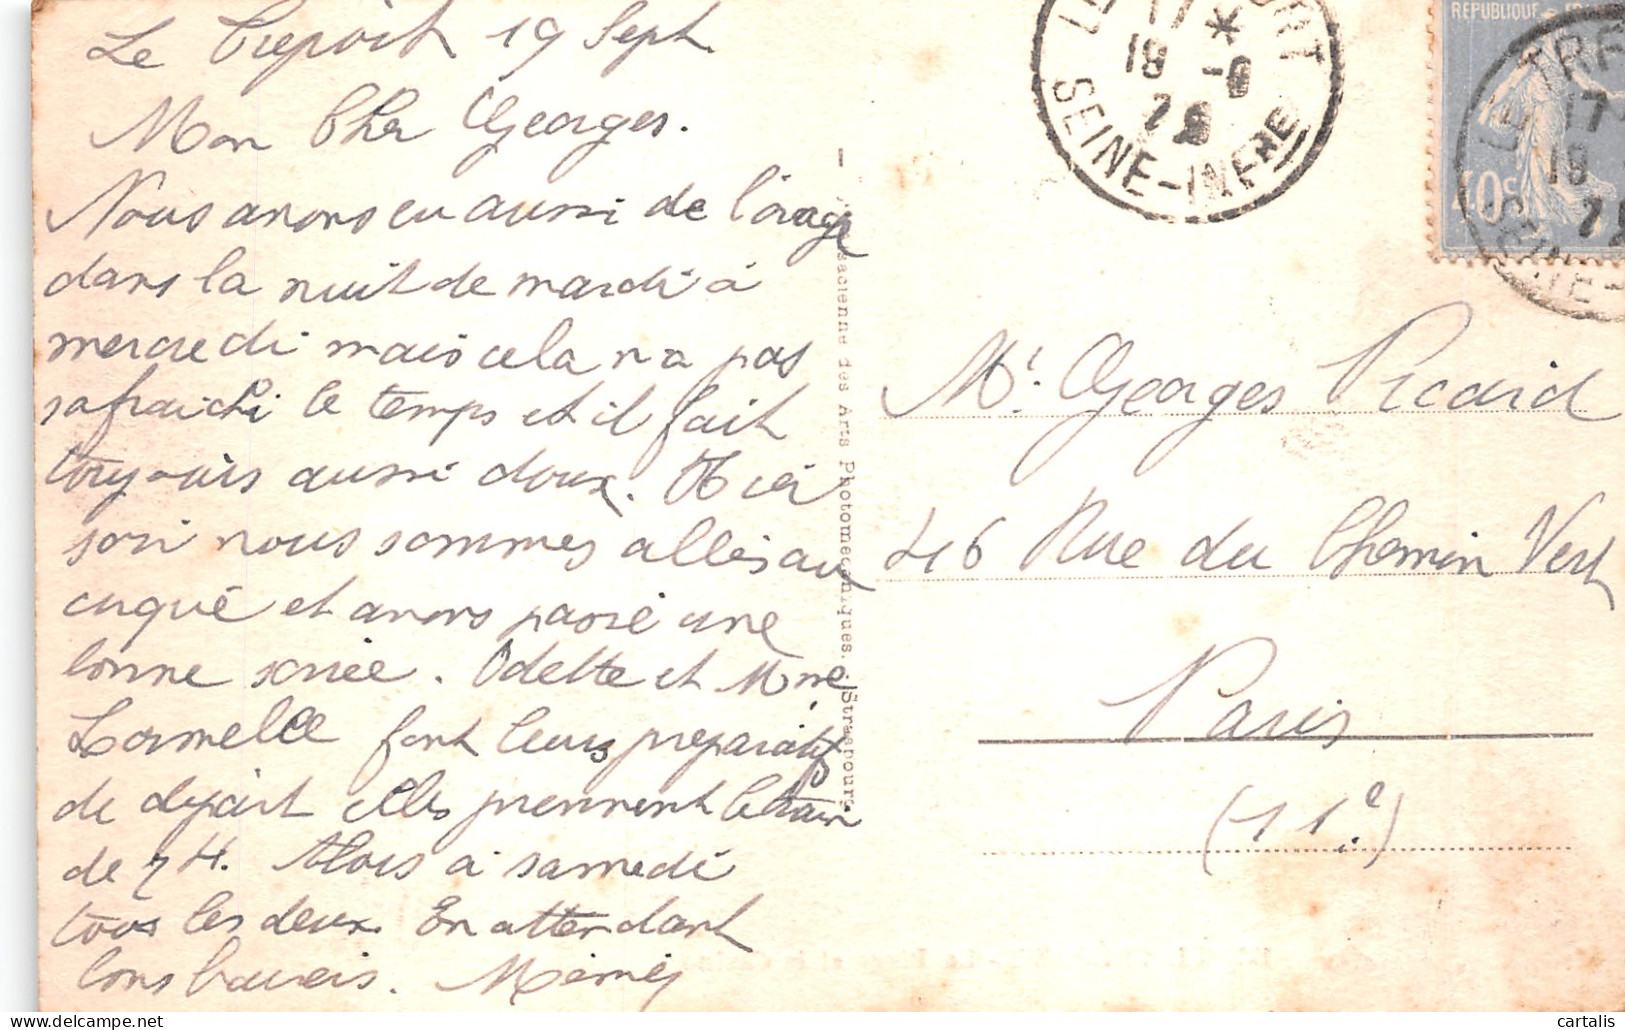 Le Treport 19 Sept
Mon Cher Georges.
Nous avons eu aussi de l'orage
dans la nuit de mardi à
mercredi mais cela n a pas
rafraichi le temps et il fait
toujours aussi doux. Hier
soir nous sommes allés au
cirque et avons passé une
bonne soirée. Odette et Mme
Lormelle font leurs préparatifs
de départ elles prennent le train
de 7 H. Alors à samedi
tous les deux. En attendant
bons baisers. Mémé
LE PORT
17 *
19 -9
SEINE-INFRE
REPUBLIQUE
40c
LE TRE
17
19
SEINE-
Alsacienne des Arts Photomecaniques. - Strasbourg.
Mr. Georges Picard
46 Rue du Chemin Vert
Paris
(11e.)
cartalis